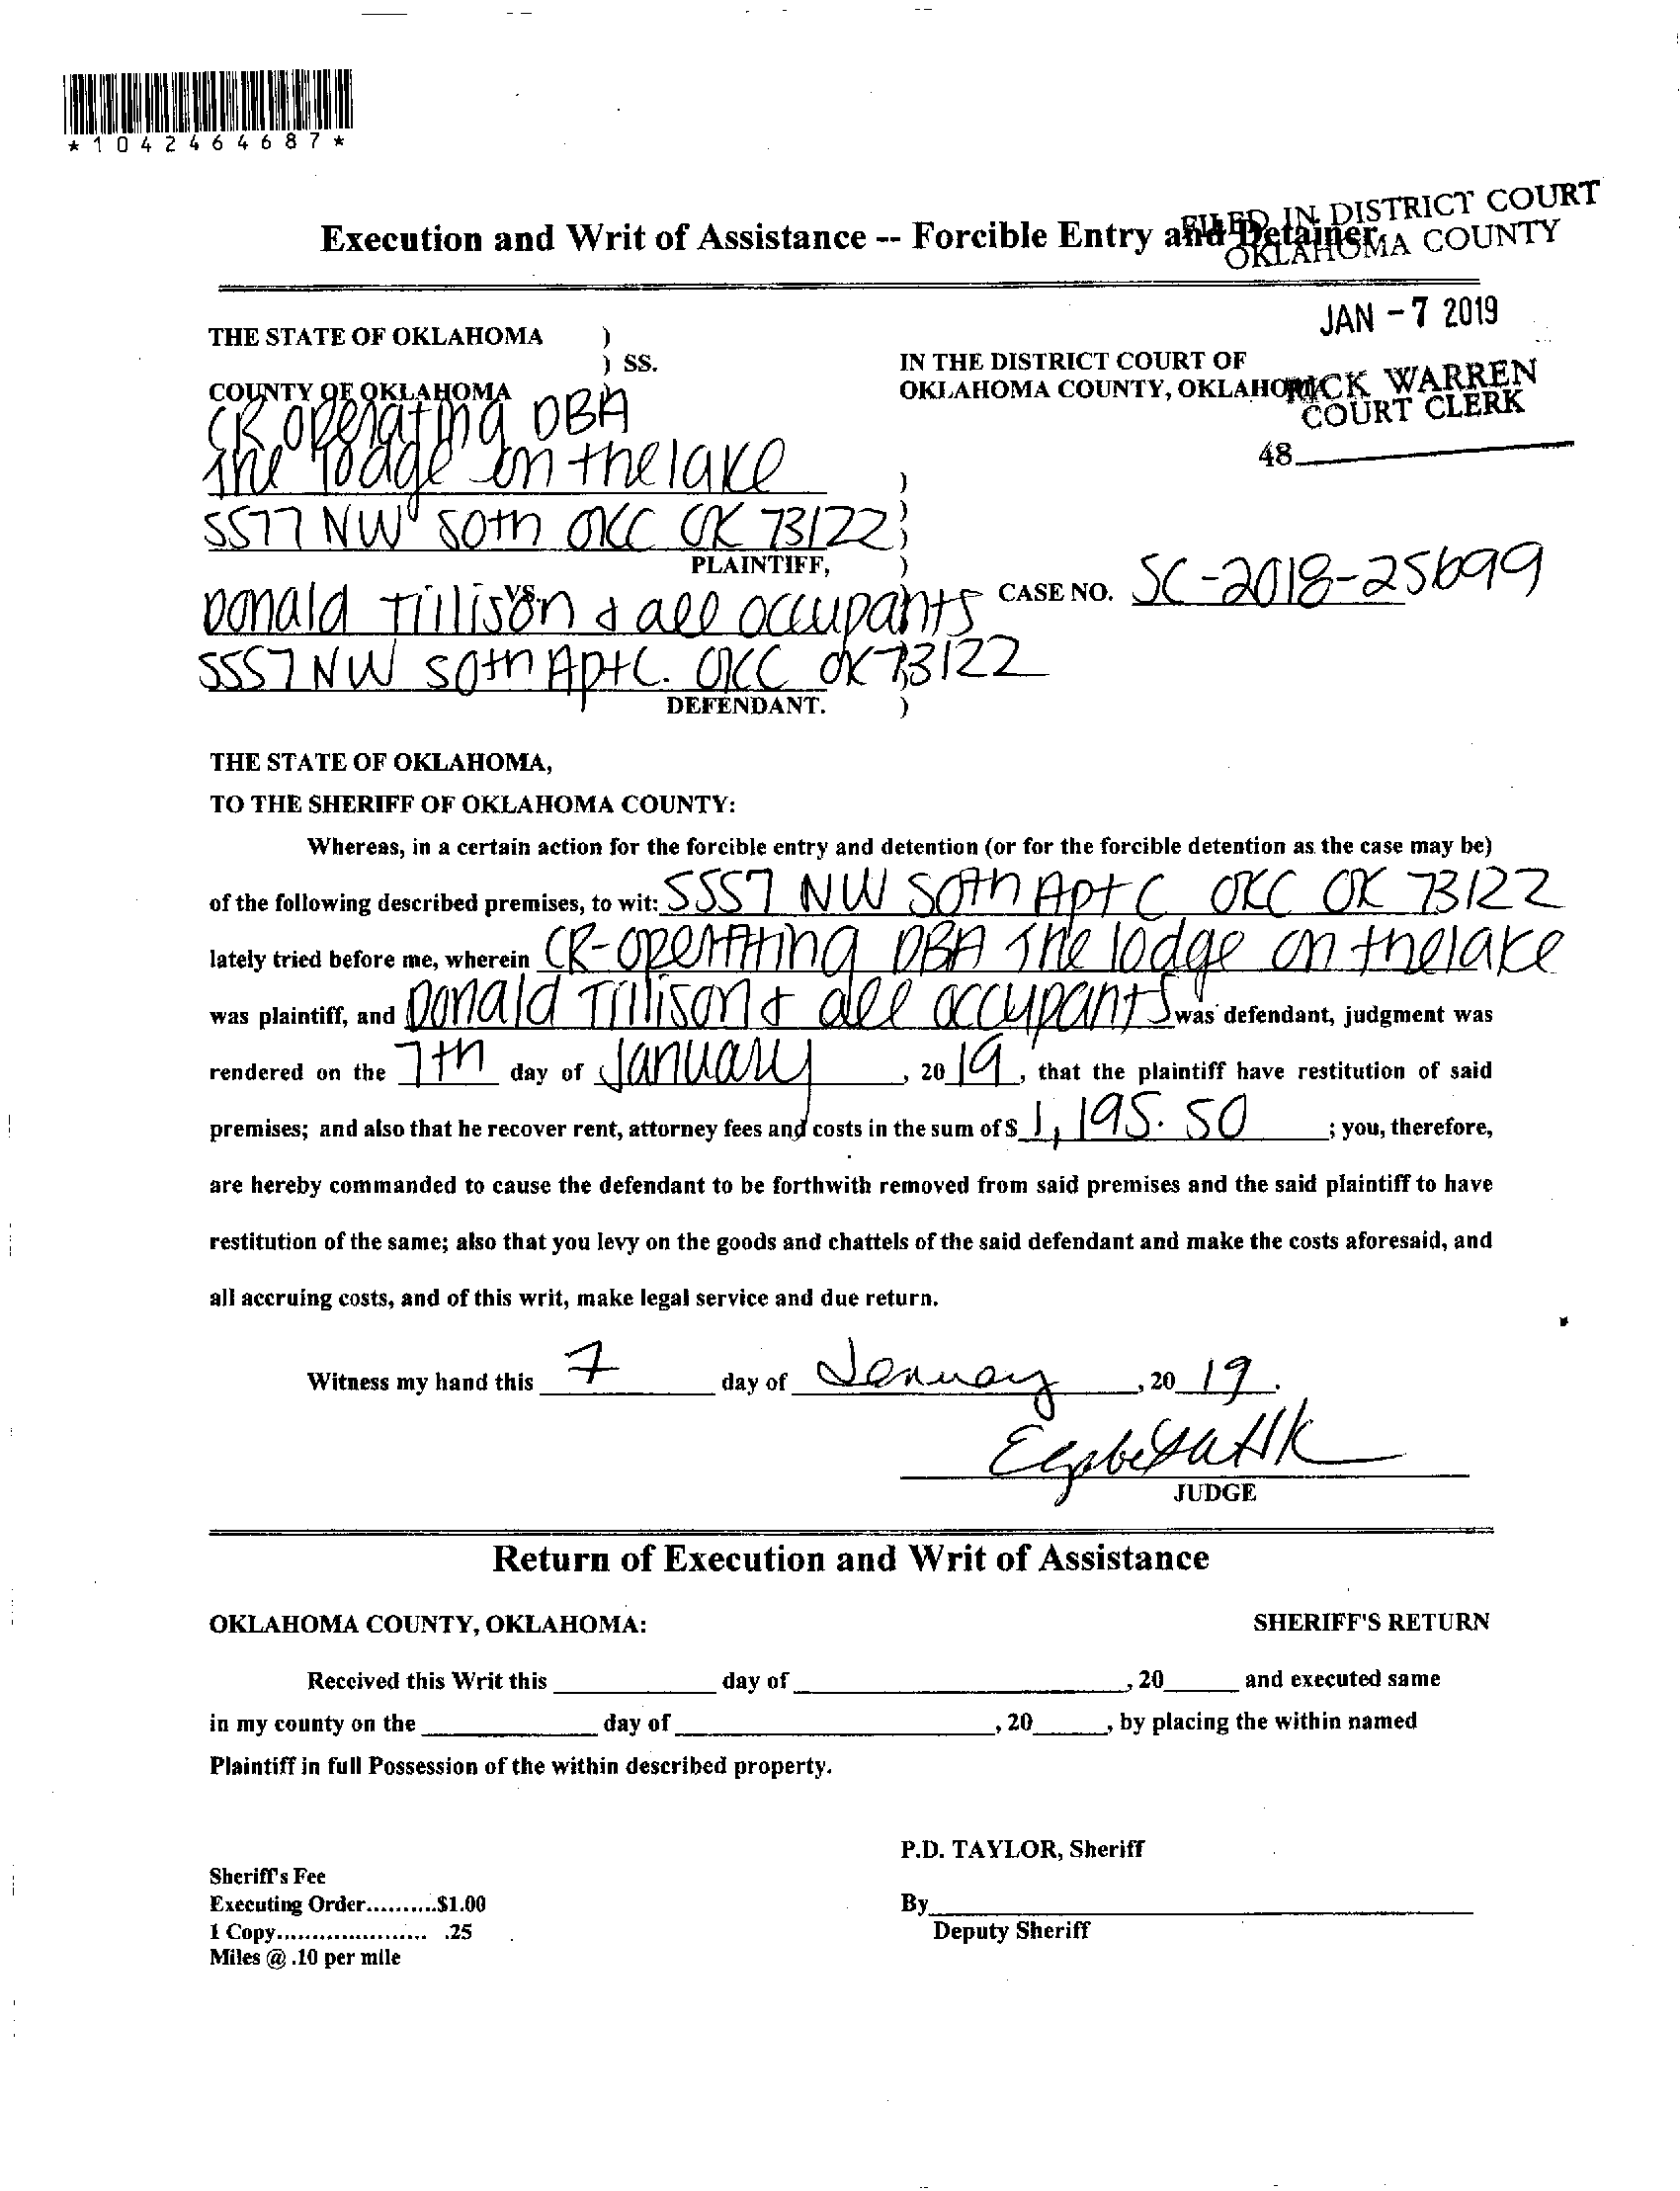 *1042464687*
Execution and Writ of Assistance -- Forcible Entry and Detainer
FILED IN DISTRICT COURT
OKLAHOMA COUNTY
JAN - 7 2019
RICK WARREN
COURT CLERK
48
THE STATE OF OKLAHOMA )
) SS.
COUNTY OF OKLAHOMA )
IN THE DISTRICT COURT OF
OKLAHOMA COUNTY, OKLAHOMA
CR operating DBA
The lodge on the lake )
5577 NW 50th OKC OK 73122 )
PLAINTIFF, )
VS.
Donald Tillison & all occupants
CASE NO. SC-2018-25699
5557 NW 50th Apt C. OKC OK 73122
DEFENDANT. )
THE STATE OF OKLAHOMA,
TO THE SHERIFF OF OKLAHOMA COUNTY:
Whereas, in a certain action for the forcible entry and detention (or for the forcible detention as the case may be)
of the following described premises, to wit: 5557 NW 50th Apt C OKC OK 73122
lately tried before me, wherein CR-operating DBA The lodge on the lake
was plaintiff, and Donald Tillison & all occupants was defendant, judgment was
rendered on the 7th day of January, 2019, that the plaintiff have restitution of said
premises; and also that he recover rent, attorney fees and costs in the sum of $ 1,195.50; you, therefore,
are hereby commanded to cause the defendant to be forthwith removed from said premises and the said plaintiff to have
restitution of the same; also that you levy on the goods and chattels of the said defendant and make the costs aforesaid, and
all accruing costs, and of this writ, make legal service and due return.
Witness my hand this 7 day of January, 2019.
JUDGE
Return of Execution and Writ of Assistance
OKLAHOMA COUNTY, OKLAHOMA: SHERIFF'S RETURN
Received this Writ this ____ day of ____, 20____ and executed same
in my county on the ____ day of ____, 20____, by placing the within named
Plaintiff in full Possession of the within described property.
P.D. TAYLOR, Sheriff
Sheriff's Fee
Executing Order..........$1.00
1 Copy..................... .25
Miles @ .10 per mile
By____
Deputy Sheriff